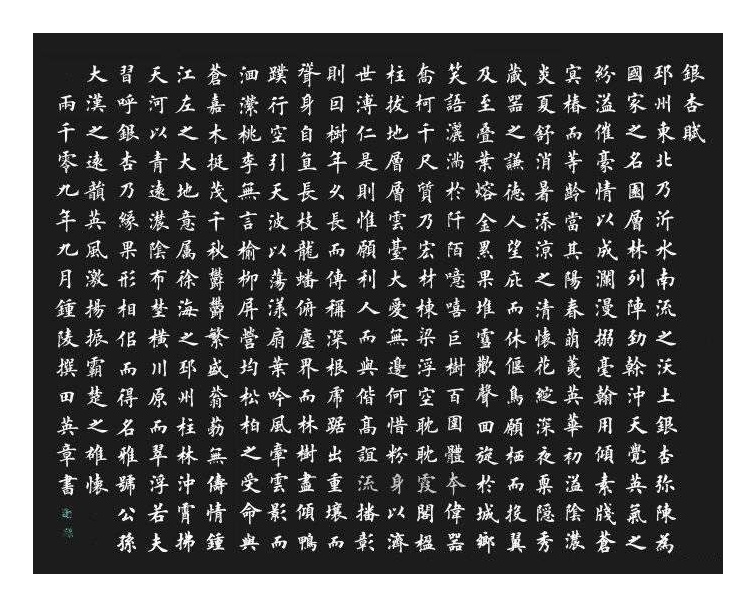 銀杏賦
邳州東北乃沂水南流之沃土銀杏弥陳為
國家之名園層林列陣勁榦沖天覺英氣之
紛溢催豪情以成瀾漫搦毫翰用傾素牋蒼
冥椿而等齡當其陽春萌荑英華初溢陰濃
炎夏舒消暑添涼之清懷花綻深夜稟隱秀
蔵器之謙德人望庇而休偃鳥願栖而投翼
及至叠葉熔金累果堆雪歡聲回旋於城鄉
笑語灑滿於阡陌噫嘻巨樹百圍體本偉器
喬柯千尺質乃宏材棟梁浮空耽耽霞閣楹
柱拔地層層雲臺大愛無邊何惜粉身以濟
世溥仁是則惟願利人而與偕高誼流播彰
則曰樹年久長而傳稱深根虎踞出重壤而
聳身自直長枝龍蟠俯塵界而林樹盡傾鴨
蹼行空引天波以蕩漾扇葉吟風牽雲影而
洄瀠桃李無言榆柳屏營均松柏之受命與
蒼嘉木挺茂千秋鬱鬱繁盛蓊勃無儔情鍾
江左之大地意属徐海之邳州柱林沖霄拂
天河以青遠濃陰布埜橫川原而翠浮若夫
習呼銀杏乃緣果形相侣而得名雅號公孫
大漢之遠韻英風激揚振霸楚之雄懷
兩千零九年九月鍾陵撰田英章書